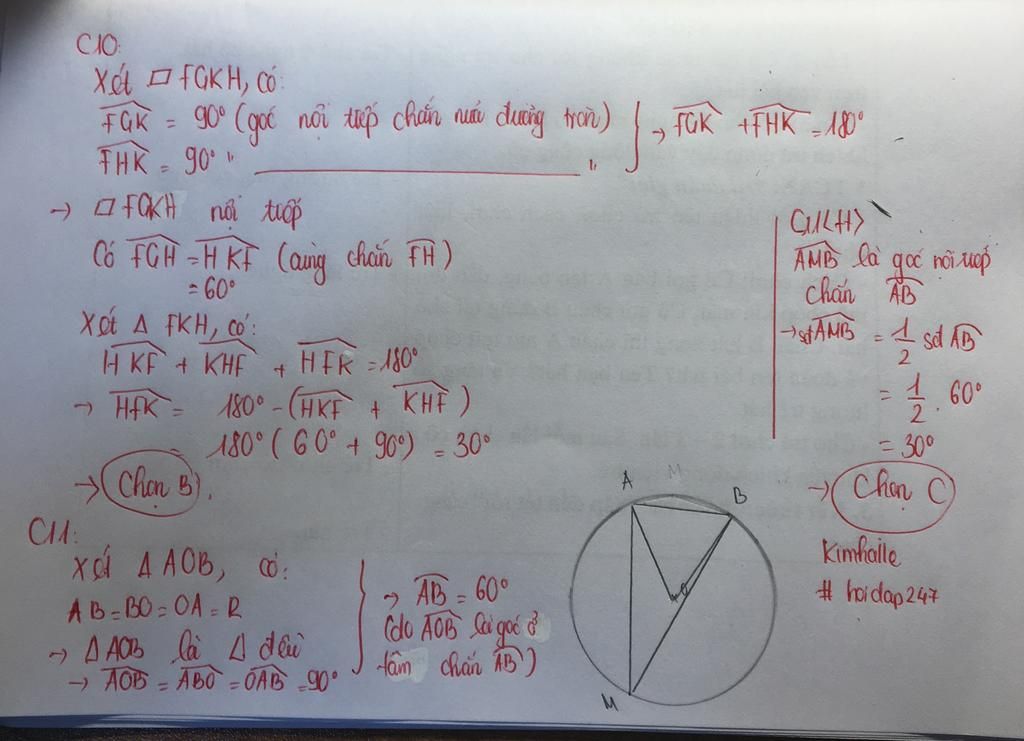 C10:
Xét □ FGKH, có:
FGK = 90° (góc nội tiếp chắn nửa đường tròn)
FHK = 90° " ———— "
→ FGK + FHK = 180°
→ □ FGKH nội tiếp
Có FGH = HKF (cùng chắn FH)
= 60°
Xét Δ FKH, có:
HKF + KHF + HFK = 180°
→ HFK = 180° - (HKF + KHF)
= 180° (60° + 90°) = 30°
→ Chọn B.
C11:
Xét Δ AOB, có:
AB = BO = OA = R
→ Δ AOB là Δ đều
→ AOB = ABO = OAB = 90°
→ AB = 60°
(do AOB là góc ở
tâm chắn AB)
A
M
B
O
M
AMB là góc nội tiếp
chắn AB
→ sđ AMB = 1/2 sđ AB
= 1/2 . 60°
= 30°
→ Chọn C
Kimhaille
# hoidap247